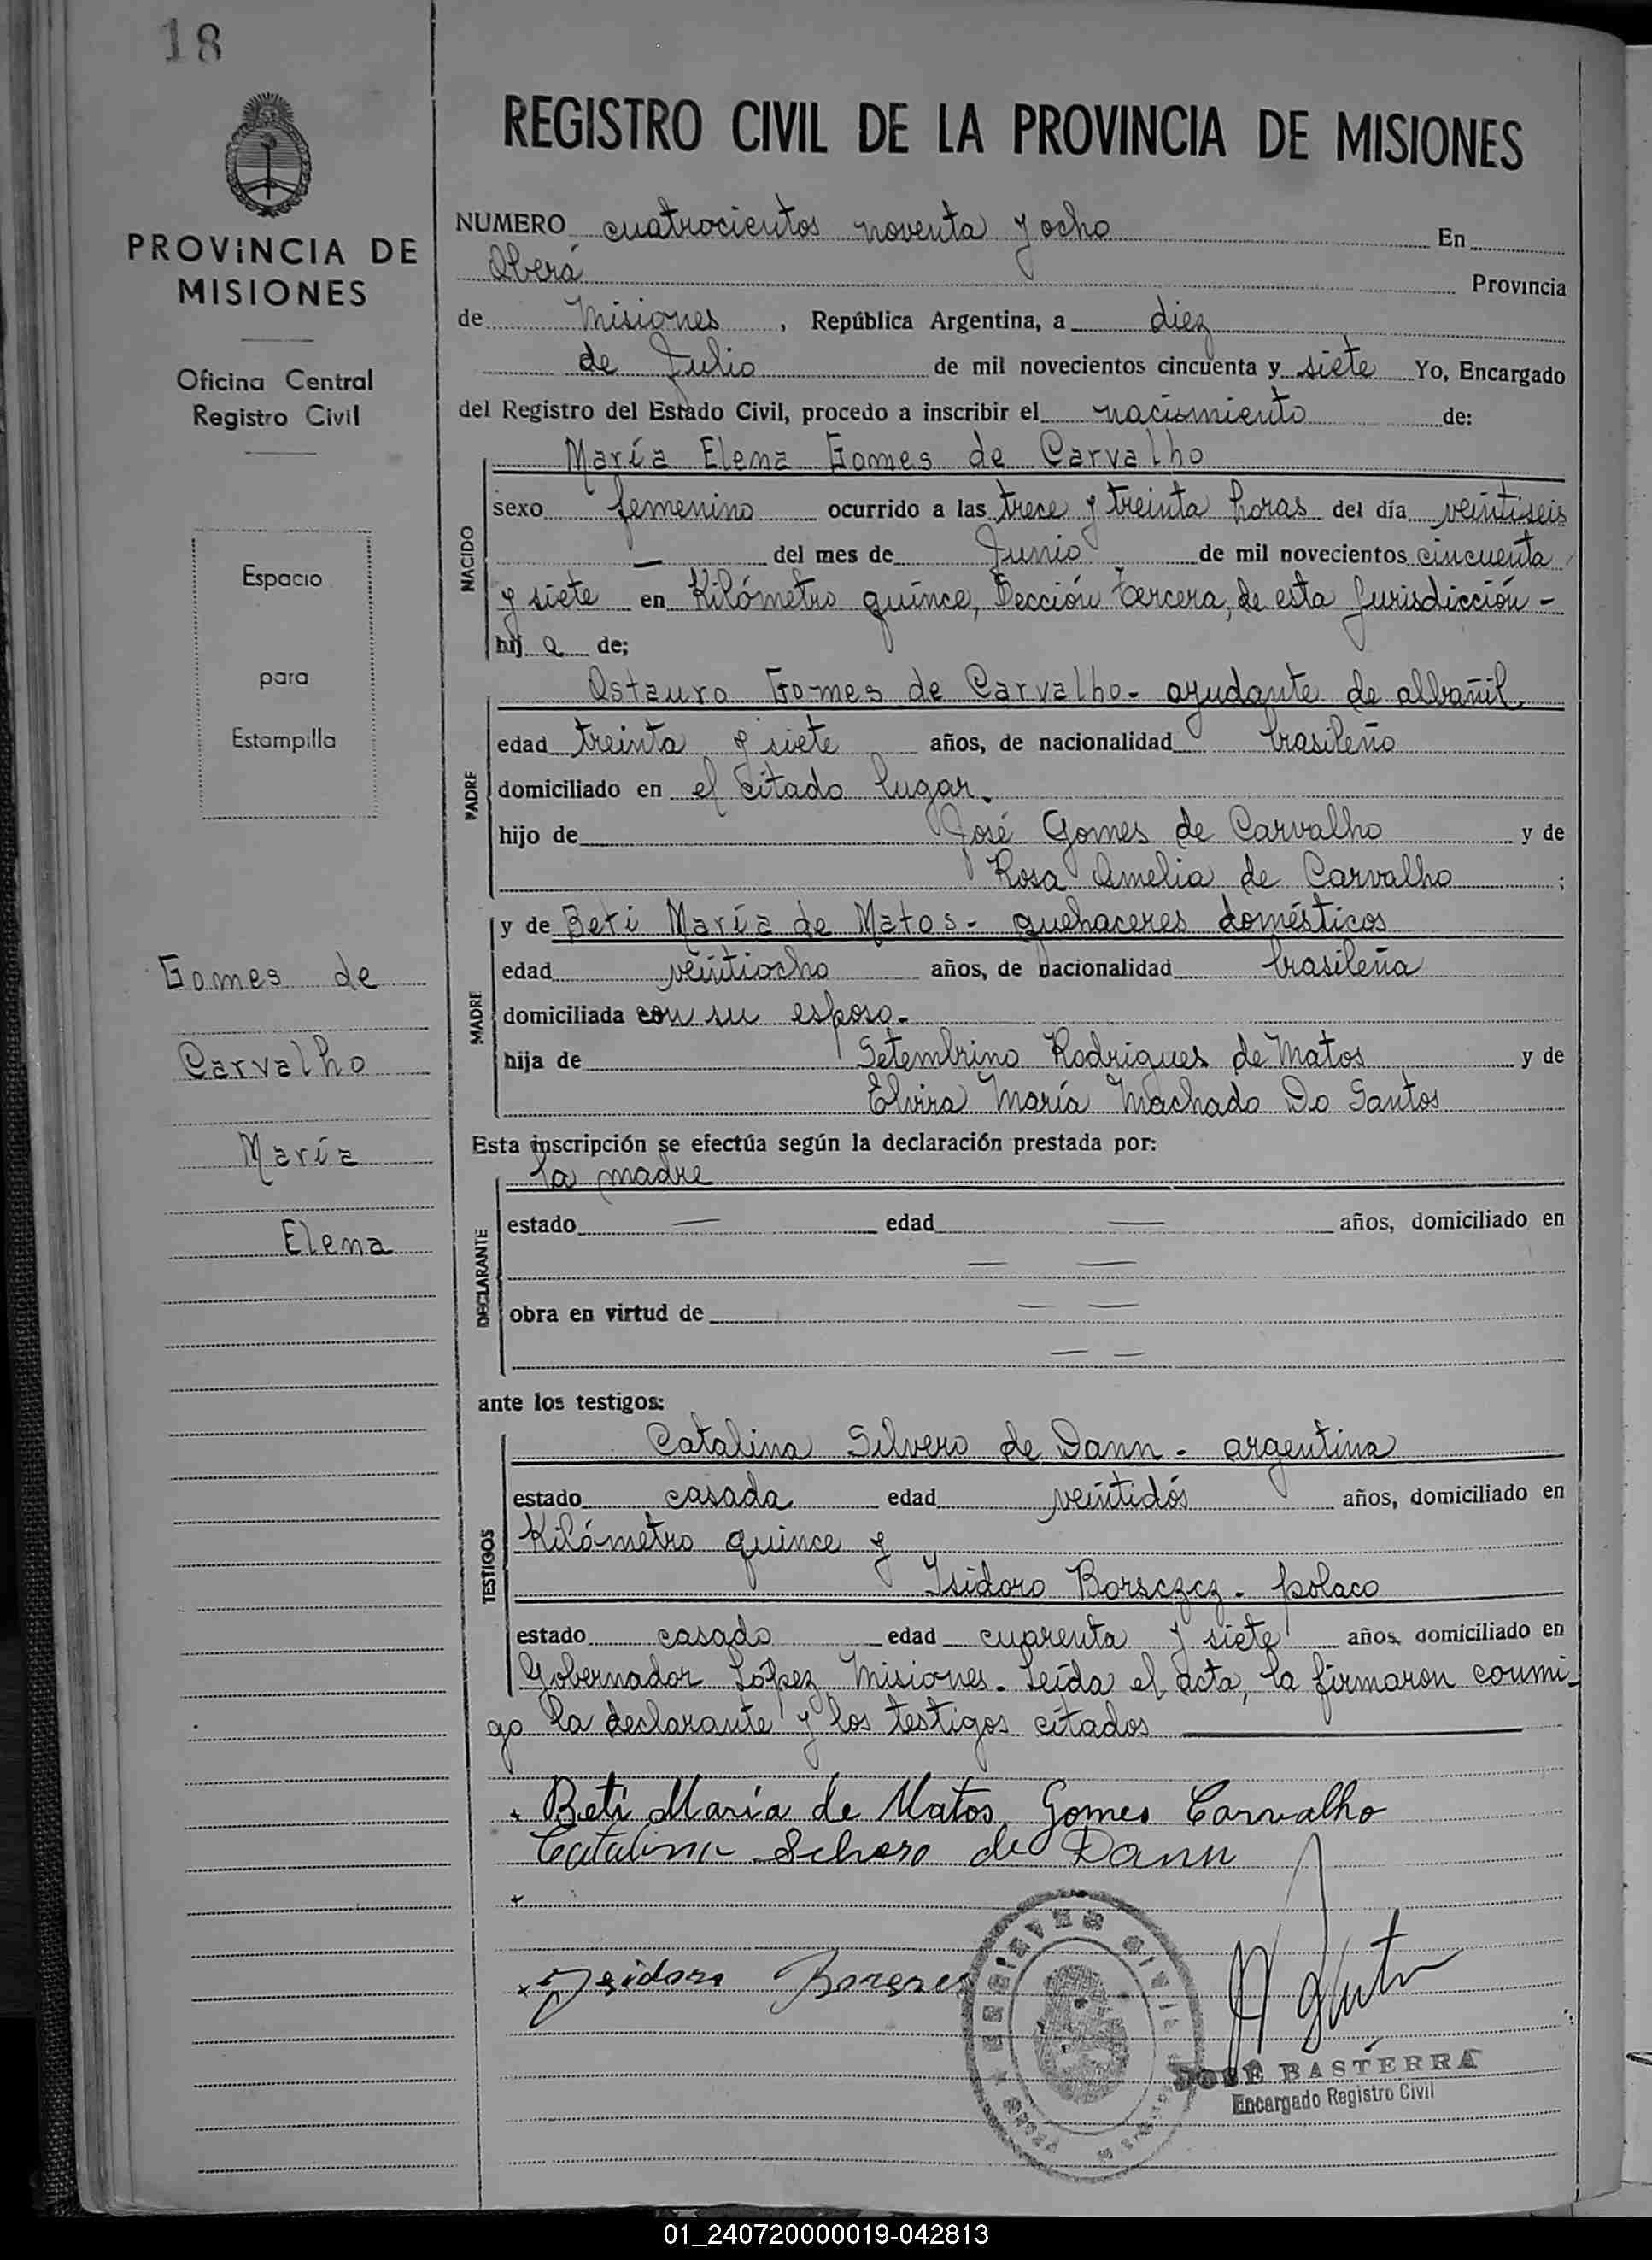 18
PROVINCIA DE
MISIONES
Oficina Central
Registro Civil
Espacio
para
Estampilla
Gomes de
Carvalho
María
Elena
REGISTRO CIVIL DE LA PROVINCIA DE MISIONES
NUMERO cuatrocientos noventa y ocho En
Oberá Provincia
de Misiones, República Argentina, a diez
de Julio de mil novecientos cincuenta y siete Yo, Encargado
del Registro del Estado Civil, procedo a inscribir el nacimiento de:
María Elena Gomes de Carvalho
NACIDO
sexo femenino ocurrido a las trece y treinta horas del día veintiseis
— del mes de Junio de mil novecientos cincuenta
y siete en Kilómetro quince, Sección tercera, de esta Jurisdicción -
hij a de;
PADRE
Ostauro Gomes de Carvalho- ayudante de albañil
edad treinta y siete años, de nacionalidad brasileño
domiciliado en el citado lugar.
hijo de José Gomes de Carvalho y de
Rosa Amelia de Carvalho ;
MADRE
y de Beti María de Matos- quehaceres domésticos
edad veintiocho años, de nacionalidad brasileña
domiciliada con su esposo-
hija de Setembrino Rodrigues de Matos y de
Elvira María Machado Do Santos
Esta inscripción se efectúa según la declaración prestada por:
la madre
DECLARANTE
estado — edad — años, domiciliado en
— —
obra en virtud de — —
— —
ante los testigos:
TESTIGOS
Catalina Silvero de Dann - argentina
estado casada edad veintidós años, domiciliado en
Kilómetro quince y
Isidoro Borsczcz - polaco
estado casado edad cuarenta y siete años, domiciliado en
Gobernador López Misiones. Leída el acta, la firmaron conmi-
go la declarante y los testigos citados
Beti María de Matos Gomes Carvalho
Catalina de Dann
Isidoro
JOSÉ BASTERRA
Encargado Registro Civil
01_240720000019-042813